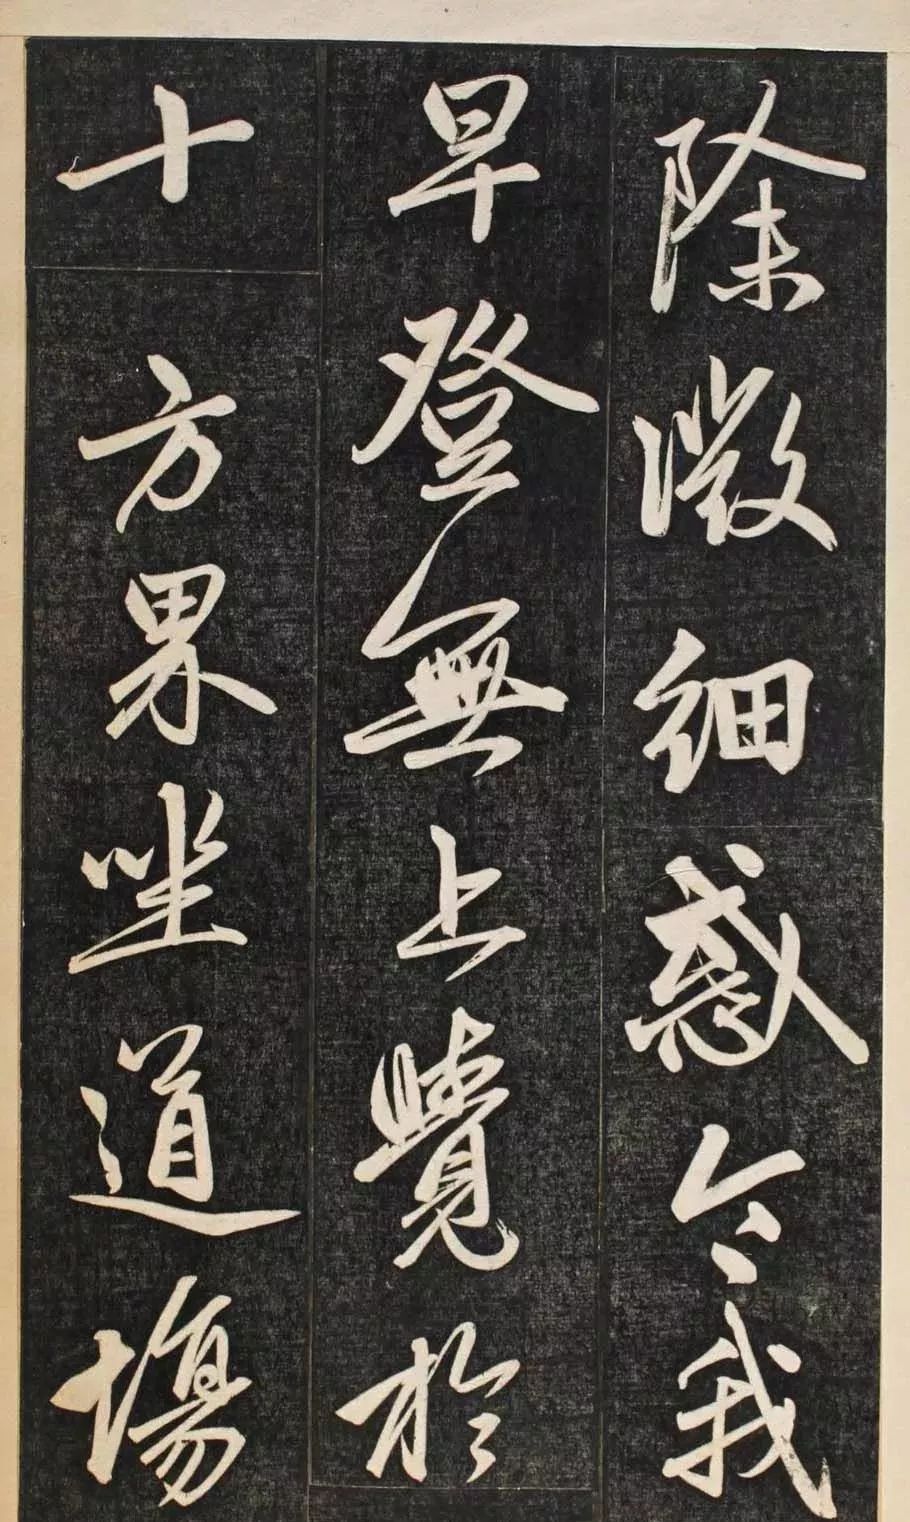 除微細惑令我
早登無上覺於
十方界坐道場